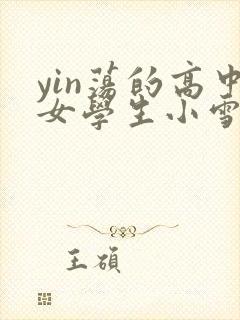 yin蕩的高中
女學生小雪
王碩